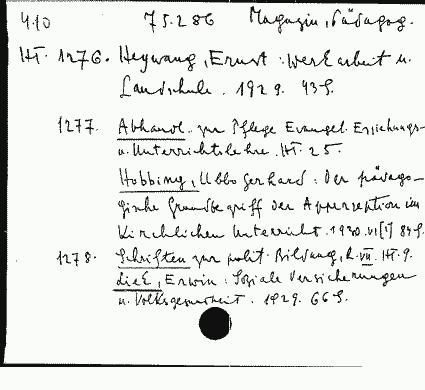 410 75.286 Magazin, Pädagog.
Ht. 1276. Heywang, Ernst: Werkarbeit u.
Landschule. 1929. 43 S.
1277. Abhandl. zur Pflege Evangel. Erziehungs-
u. Unterrichtslehre. Ht. 25.
Hobbing, Ubbo Gerhard: Der pädago-
gische Grundbegriff der Apperzeption im
Kirchlichen Unterricht. 1930. VI[!] 84 S.
1278. Schriften zur polit. Bildung, R. VII. Ht. 9.
Liek, Erwin: Soziale Versicherungen
u. Volksgesundheit. 1929. 66 S.